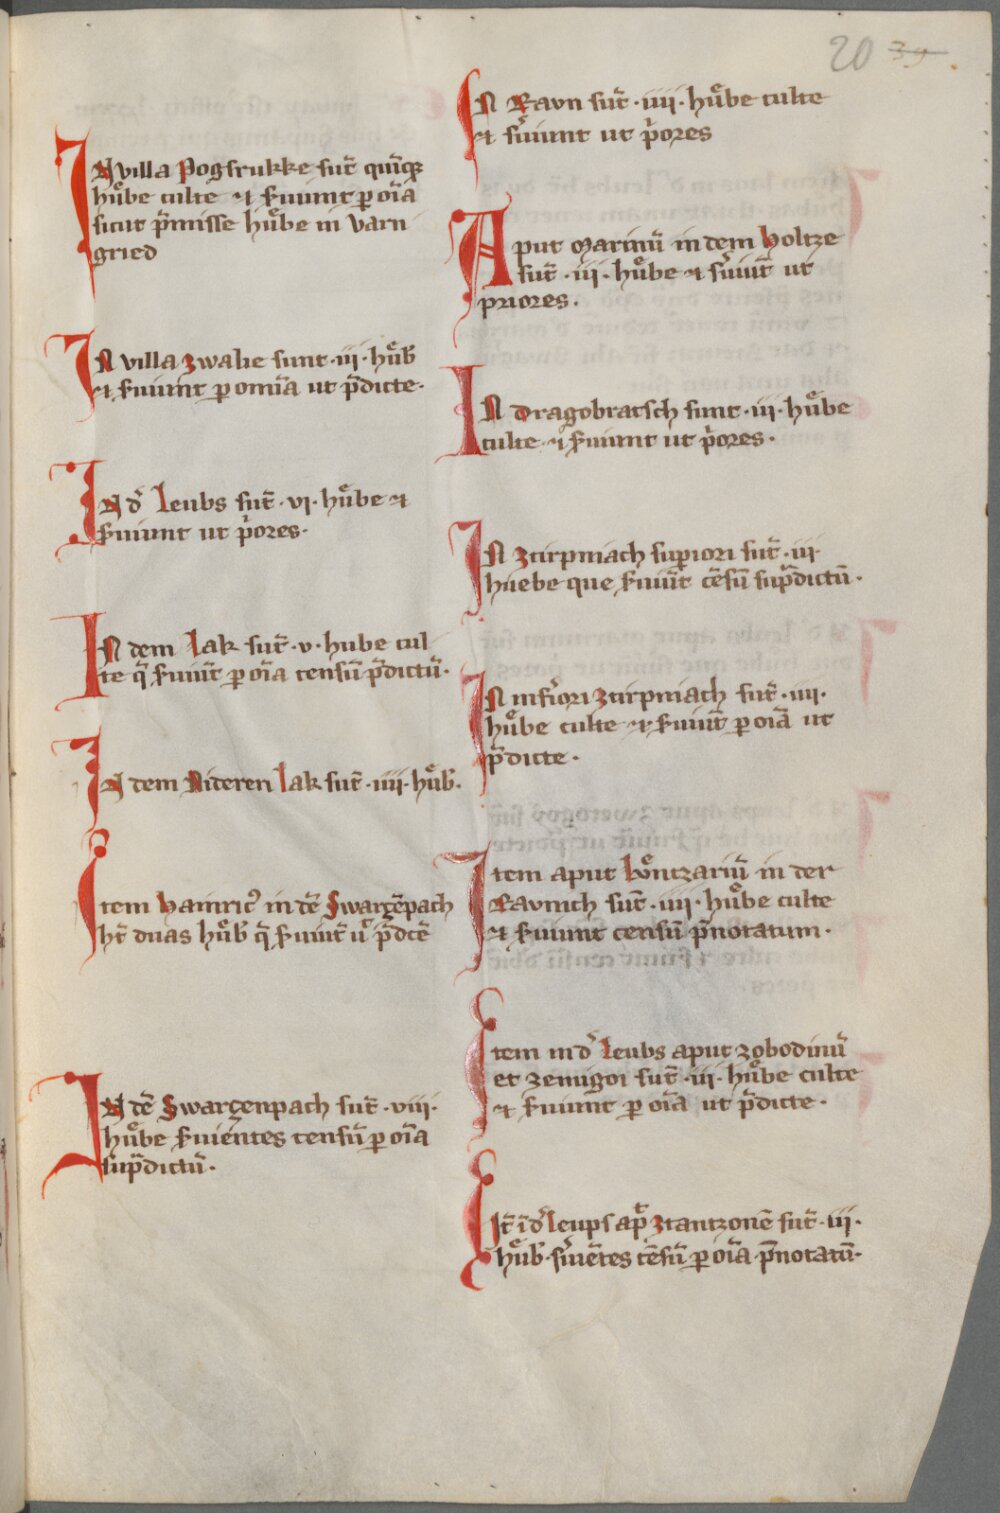 20 39
IN villa Pogsrukke sūt quīq
huͤbe culte ⁊ ẜuiunt ꝑ oīa
sicut p̄misse huͤbe in Varn
gried
IN villa zwalie sunt ·iii· huͤb̄
⁊ ẜuiunt ꝑ omīa ut p̄dicte·
IN d̓ Leubs sūt ·vi· huͤbe ⁊
ẜuiunt ut p̓ores·
IN dem Lak sūt ·v· hube cul
te q̄ ẜuiūt ꝑ oīa censū p̄dictū·
IN dem Nideren Lak sūt ·iiii· huͤb̄·
Item Hainric̓ in dē Swarcēpach
ht̄ duas huͤb̄ q̄ ẜuiūt ut p̄dcē
IN dē Swarcenpach sūt ·viii·
huͤbe ẜuientes censū ꝑ oīa
sup̄dictū·
IN Ravn sūt ·iiii· huͤbe culte
⁊ s̓uiunt ut p̓ores
Aput Marinū in dem Holtze
sūt ·iii· huͤbe ⁊ s̓uiūt ut
priores·
IN Dragobratsch sunt ·iii· huͤbe
culte ⁊ ẜuiunt ut p̓ores·
IN ztirpniach supiori sūt ·iii·
huebe que ẜuiūt cēsū sup̄dictū·
IN inf̓iori ztirpniach sūt ·iiii·
huͤbe culte ⁊ ẜuiūt ꝑ oīa ut
p̄dicte·
Item aput Hoͤntzariū in der
Ravnich sūt ·iiii· huͤbe culte
⁊ ẜuiunt censū p̄notatum·
Item in d̓ Leubs aput zobodinū
et zemigoi sūt ·iii· huͤbe culte
⁊ ẜuiunt ꝑ oīa ut p̄dicte·
It̄ ī d̓ Leups ap̄ ztantzonē sūt ·iii·
huͤb̄· s̓uiētes cēsū ꝑ oīa p̄notatū·